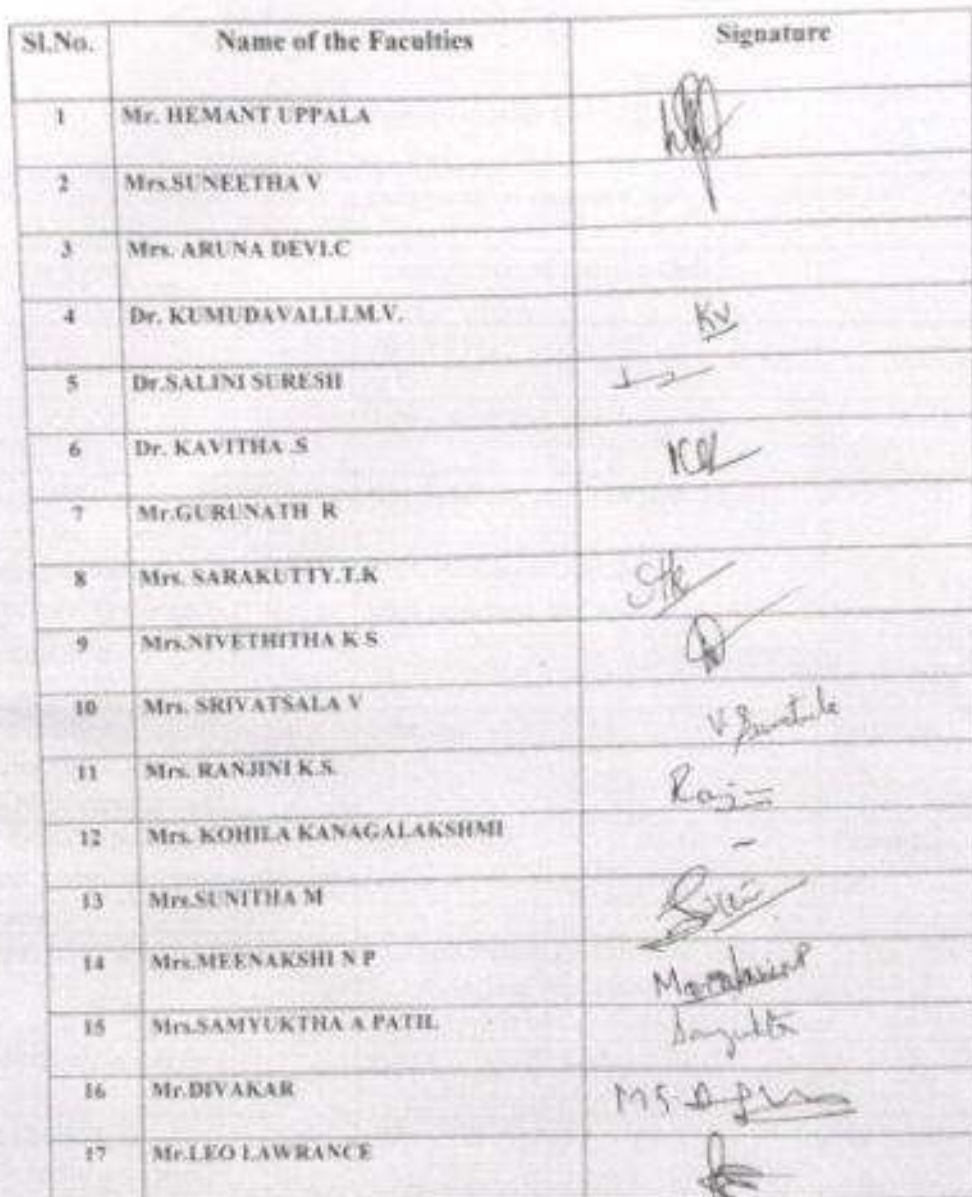 Sl.No. Name of the Faculties Signature
1 Mr. HEMANT UPPALA
2 Mrs.SUNEETHA V
3 Mrs. ARUNA DEVI.C
4 Dr. KUMUDAVALLI.M.V. KV
5 Dr.SALINI SURESH
6 Dr. KAVITHA .S
7 Mr.GURUNATH R
8 Mrs. SARAKUTTY.T.K
9 Mrs.NIVETHITHA K S
10 Mrs. SRIVATSALA V
11 Mrs. RANJINI K.S.
12 Mrs. KOHILA KANAGALAKSHMI -
13 Mrs.SUNITHA M
14 Mrs.MEENAKSHI N P
15 Mrs.SAMYUKTHA A PATIL
16 Mr.DIVAKAR
17 Mr.LEO LAWRANCE